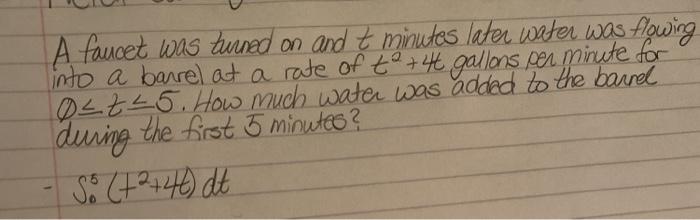 A faucet was turned on and t minutes later water was flowing
into a barrel at a rate of t²+4t gallons per minute for
0≤t≤5. How much water was added to the barrel
during the first 5 minutes?
- ∫₀⁵ (t²+4t) dt